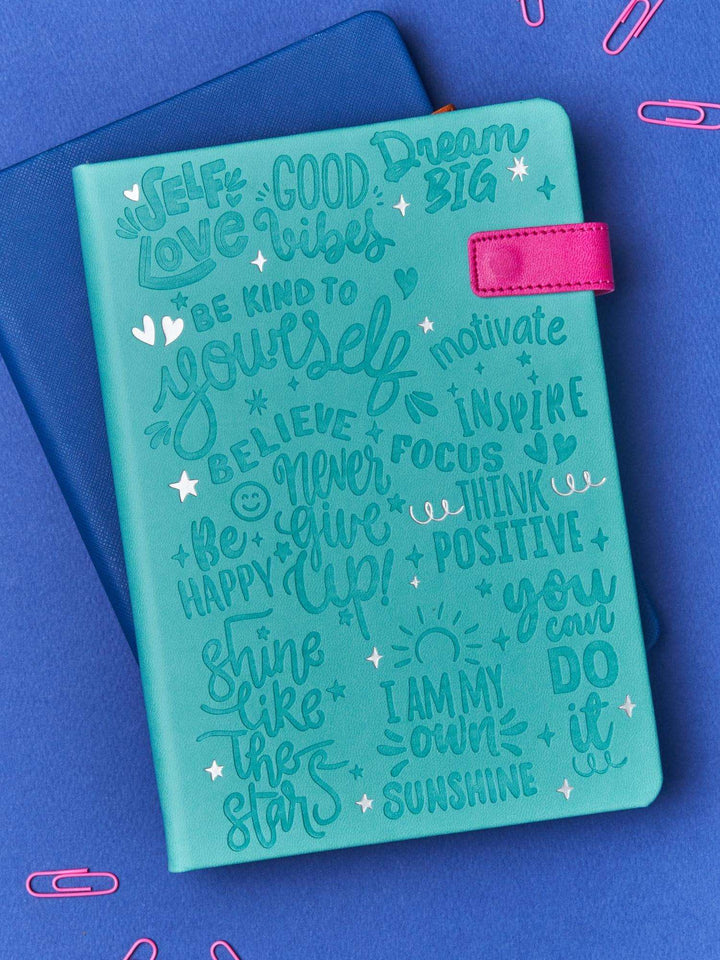 SELF
LOVE
GOOD
Vibes
Dream
BIG
BE KIND TO
yourself
motivate
INSPIRE
BELIEVE
FOCUS
Never
give
UP!
THINK
POSITIVE
Be
HAPPY
you
can
DO
it
Shine
like
The
STARS
I AM MY
own
SUNSHINE